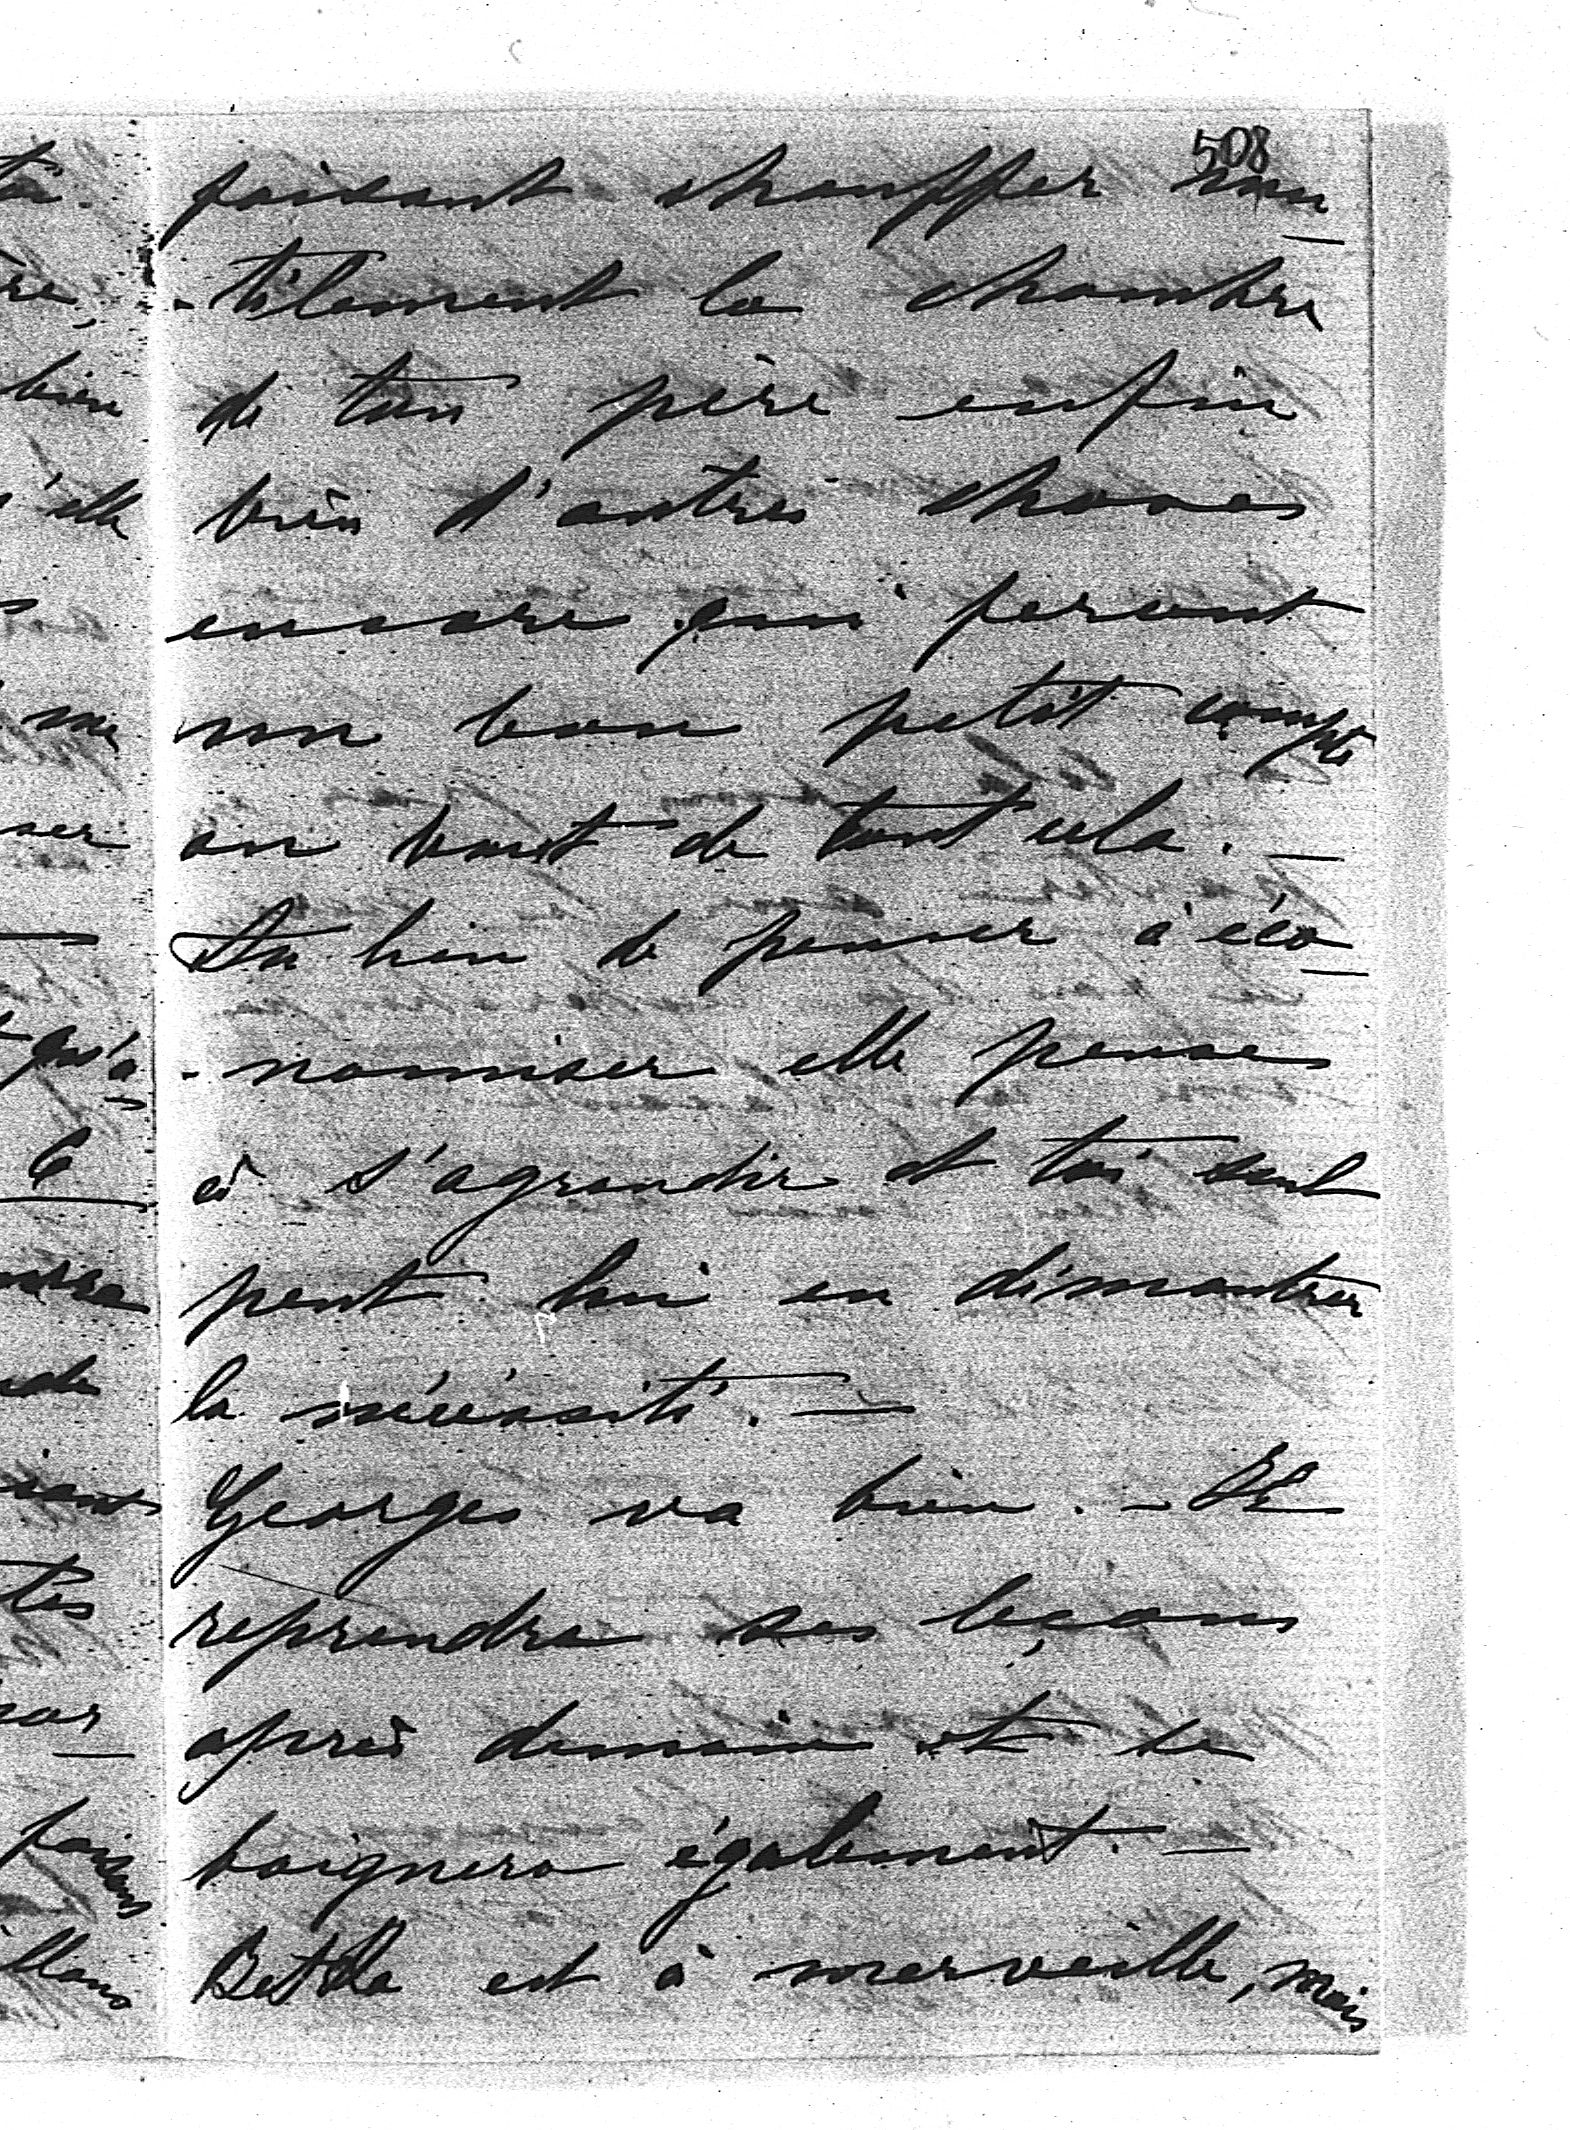 508
faisant chauffer inu
-tilement la chambre
de ton père enfin
bien d'autres choses
encore qui feront
un bon petit compte
au bout de tout cela. —
loin de penser à éco
-nomiser elle pense
à s'agrandir et toi seul
peut lui en démontrer
la nécéssité. —
Georges va bien. - Il
reprendra ses leçons
après demain et se
baignera également. —
est à merveille, mais